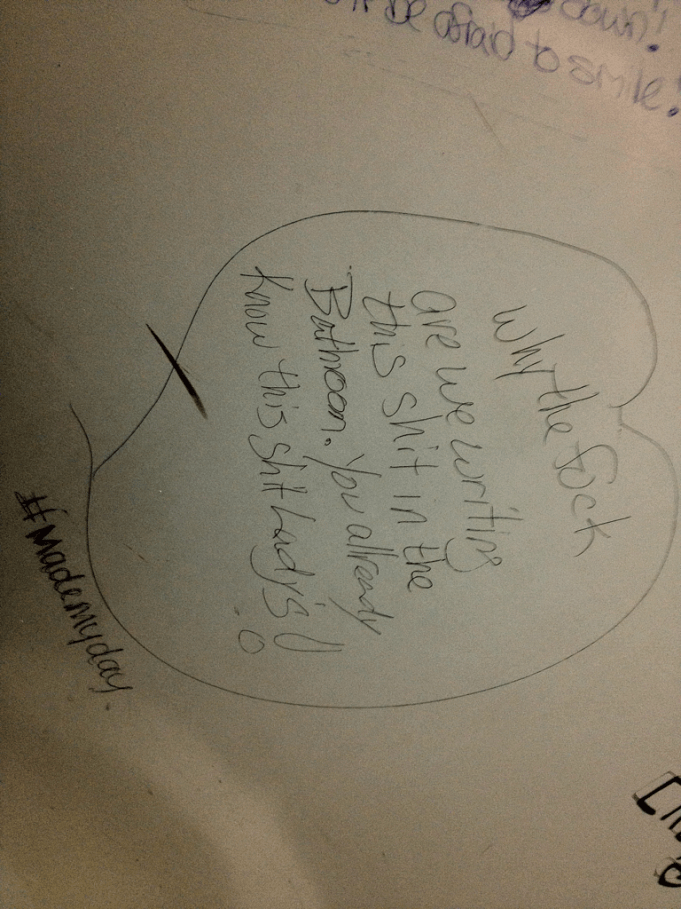 down!
be afraid to smile!
Why the fuck
are we writing
this shit in the
Bathroom. You allready
know this shit Lady's!!
#Mademyday.